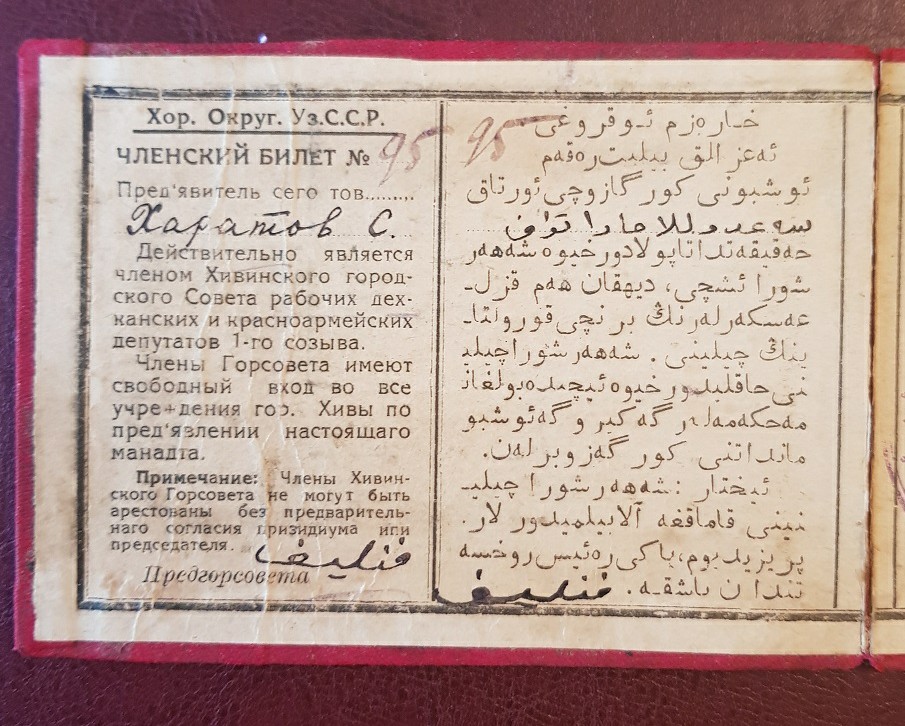 Хор. Округ. Уз.С.С.Р.
ЧЛЕНСКИЙ БИЛЕТ № 95
Пред'явитель сего тов.........
Харатов С.
Действительно является
членом Хивинского город-
ского Совета рабочих дех-
канских и красноармейских
депутатов 1-го созыва.
Члены Горсовета имеют
свободный вход во все
учре+дения гор. Хивы по
пред'явлении настоящего
манадта.
Примечание: Члены Хивин-
ского Горсовета не могут быть
арестованы без предваритель-
наго согласия призидиума или
председателя.
Предгорсовета
95
خارەزم ئوقروغى
ئەعز القى بيليت رەقەم
ئوشبونى كور گازوچى ئورتاق
حەقيقەتدا تاپولادور خيوە شەهەر
شورا ئشچى، ديهقان هەم قزل ـ
عەسكەرلەرنڭ برنچى قورولتا ـ
ينڭ چيلينى . شەهەر شورا چيلي
نى حاقليدور خيوە ئيچيدە بولغان
مەحكەمەلەر گە كير و گە ئوشبو
مانداتنى كور گەزوبرلەن.
ئيختار : شەهەر شورا چيليـ
نينى قاماقغە آلابيلميدور لار.
پريزيديوم، ياكى رەئيس روخسە
تندان باشقە.